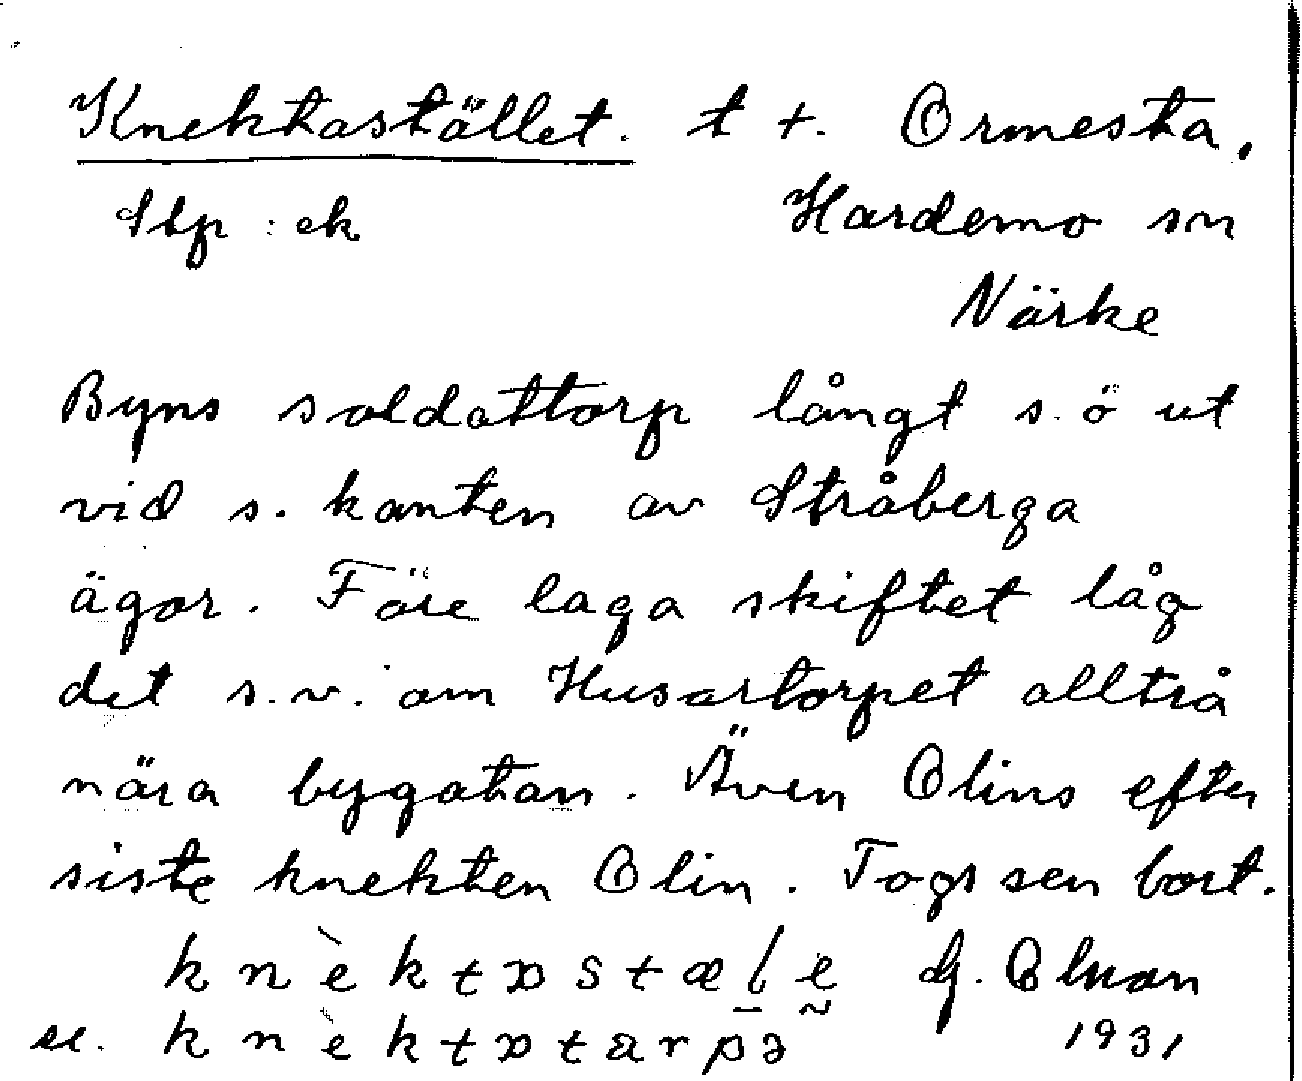 Knektastället. t +. Ormesta,
Stp : ek Hardemo sn
Närke
Byns soldattorp långt s.ö ut
vid s. kanten av Stråberga
ägor. Före laga skiftet låg
det s.v. om Husartorpet alltså
nära bygatan. Även Olins efter
siste knekten Olin. Togs sen bort.
k n è k t ɒ s t æ l e
el. k n è k t ɒ t a r p ə 1931